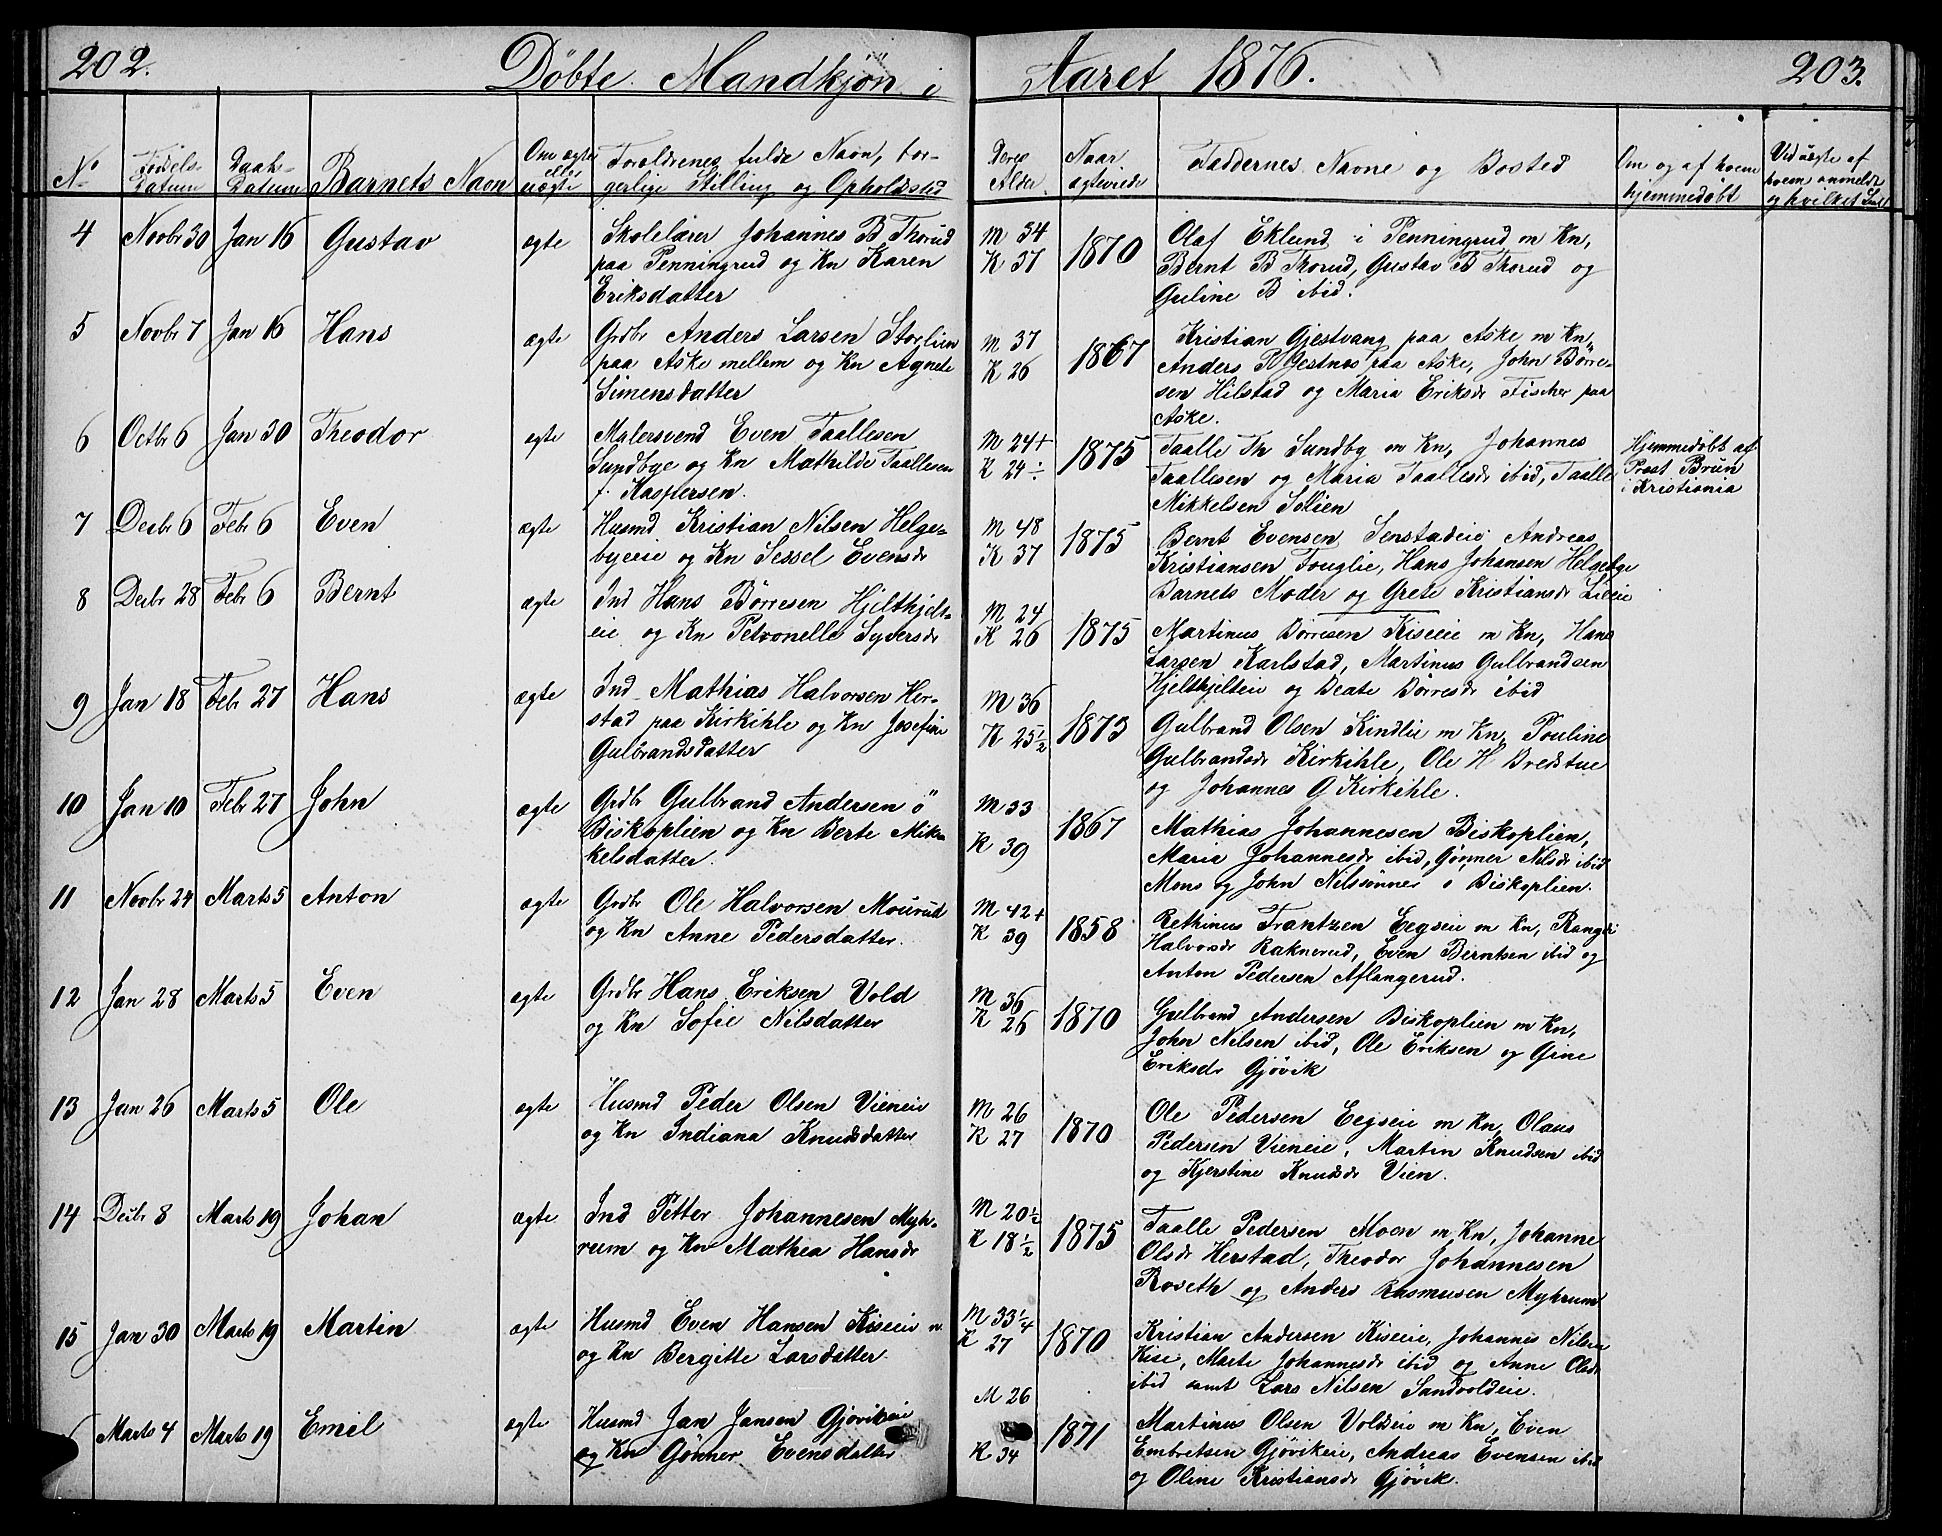 202. Döbte Mandkjön i Aaret 1876. 203.
No Födsels-Datum Daabs-Datum Barnets Navn Om ægte eller uægte Foreldrenes fulde Navn, borgerlige Stilling og Opholdssted Deres Alder. Naar ægteviede Faddernes Navne og Bosted Om og af hvem hjemmedöbt Ved uægte af hvem anmeldt og hvilket
4 Novbr 30 Jan 16 Gustav ægte Skolelærer Johannes B Thorud M 34 1870 Olaf Eklund i Penningrud m Kn,
paa Penningrud og Kn Karen K 37 Bernt B Thorud, Gustav B Thorud og
Eriksdatter Guline B ibid.
5 Novbr 7 Jan 16 Hans ægte Grdbr Anders Larsen Storlien M 37 1867 Kristian Gjestvang paa Aske m Kn,
paa Aske mellem og Kn Agnete K 26 Anders P Gjestnes paa Aske, John Börre-
Simensdatter sen Hilstad og Maria Eriksdr Fischer paa
Aske.
6 Octbr 6 Jan 30 Theodor ægte Malersvend Even Taallesen M 24+ 1875 Taalle Th Sundby m Kn, Johannes Hjemmedöbt af
Sundbye og Kn Mathilde Taallesen K 24÷ Taallesen og Maria Taallesdr ibid, Taalle Prost Brun
f. Kaspersen. Mikkelsen Sölien i Kristiania
7 Decbr 6 Febr 6 Even ægte Husmd Kristian Nilsen Helge- M 48 1875 Bernt Evensen Senstadeie Andreas
byeeie og Kn Sessel Evensdr K 37 Kristiansen Fouglie, Hans Johansen Helgebye
Barnets Moder og Grete Kristiansdr Lieeie
8 Decbr 28 Febr 6 Bernt ægte Ind Hans Börresen Hjelthjelt- M 24 1875 Martinus Börresen Kiseie m Kn, Hans
eie og Kn Petronelle Syversdr K 26 Larsen Karlstad, Martinus Gulbrandsen
Hjelthjelteie og Beate Börresdr ibid
9 Jan 18 Febr 27 Hans ægte Ind Mathias Halvorsen Her- M 36 1873 Gulbrand Olsen Kindlie m Kn, Pouline
stad paa Kirkihle og Kn Josefine K 25½ Gulbrandsdr Kirkihle, Ole H Bredstue
Gulbrandsdatter og Johannes G Kirkihle.
10 Jan 10 Febr 27 John ægte Grdbr Gulbrand Andersen ö M 33 1867 Mathias Johannesen Biskoplien,
Biskoplien og Kn Berte Mik- K 39 Maria Johannesdr ibid, Gönner Nilsdr ibid
kelsdatter. Mons og John Nilssönner ö Biskoplien.
11 Novbr 24 Marts 5 Anton ægte Grdbr Ole Halvorsen Mourud M 42+ 1858 Rethinus Frantzen Eegseie m Kn, Rangdi
og Kn Anne Pedersdatter. K 39 Halvorsdr Raknerud, Even Berntsen ibid og
Anton Pedersen Aflangerud.
12 Jan 28 Marts 5 Even ægte Grdbr Hans Eriksen Vold M 36 1870 Gulbrand Andersen Biskoplien m Kn,
og Kn Sofie Nilsdatter K 26 John Nilsen ibid, Ole Eriksen og Gine
Eriksdr Gjövik
13 Jan 26 Marts 5 Ole ægte Husmd Peder Olsen Vieneie M 26 1870 Ole Pedersen Eegseie m Kn, Olaus
og Kn Indiana Knudsdatter K 27 Pedersen Vieneie, Martin Knudsen ibid
og Kjerstine Knudsdr Vien.
14 Decbr 8 Marts 19 Johan ægte Ind Petter Johannesen Myh- M 20½ 1875 Taalle Pedersen Moen m Kn, Johanne
rum og Kn Mathea Hansdr K 18½ Olsdr Herstad, Theodor Johannesen
Roseth og Anders Rasmusen Myhrum
15 Jan 30 Marts 19 Martin ægte Husmd Even Hansen Kiseie M 33¼ 1870 Kristian Andersen Kiseie, Johannes Nilsen
og Kn Bergitte Larsdatter K 27 Kise, Marte Johannesdr ibid og Anne Olsdr
ibid samt Lars Nilsen Sandvoldeie.
Marts 4 Marts 19 Emil ægte Husmd Jan Jansen Gjövikeie M 26 1871 Martinus Olsen Voldeie m Kn, Even
og Kn Gönner Evensdatter K 34 Embretsen Gjövikeie, Andreas Evensen ibid
og Oline Kristiansdr Gjövik.